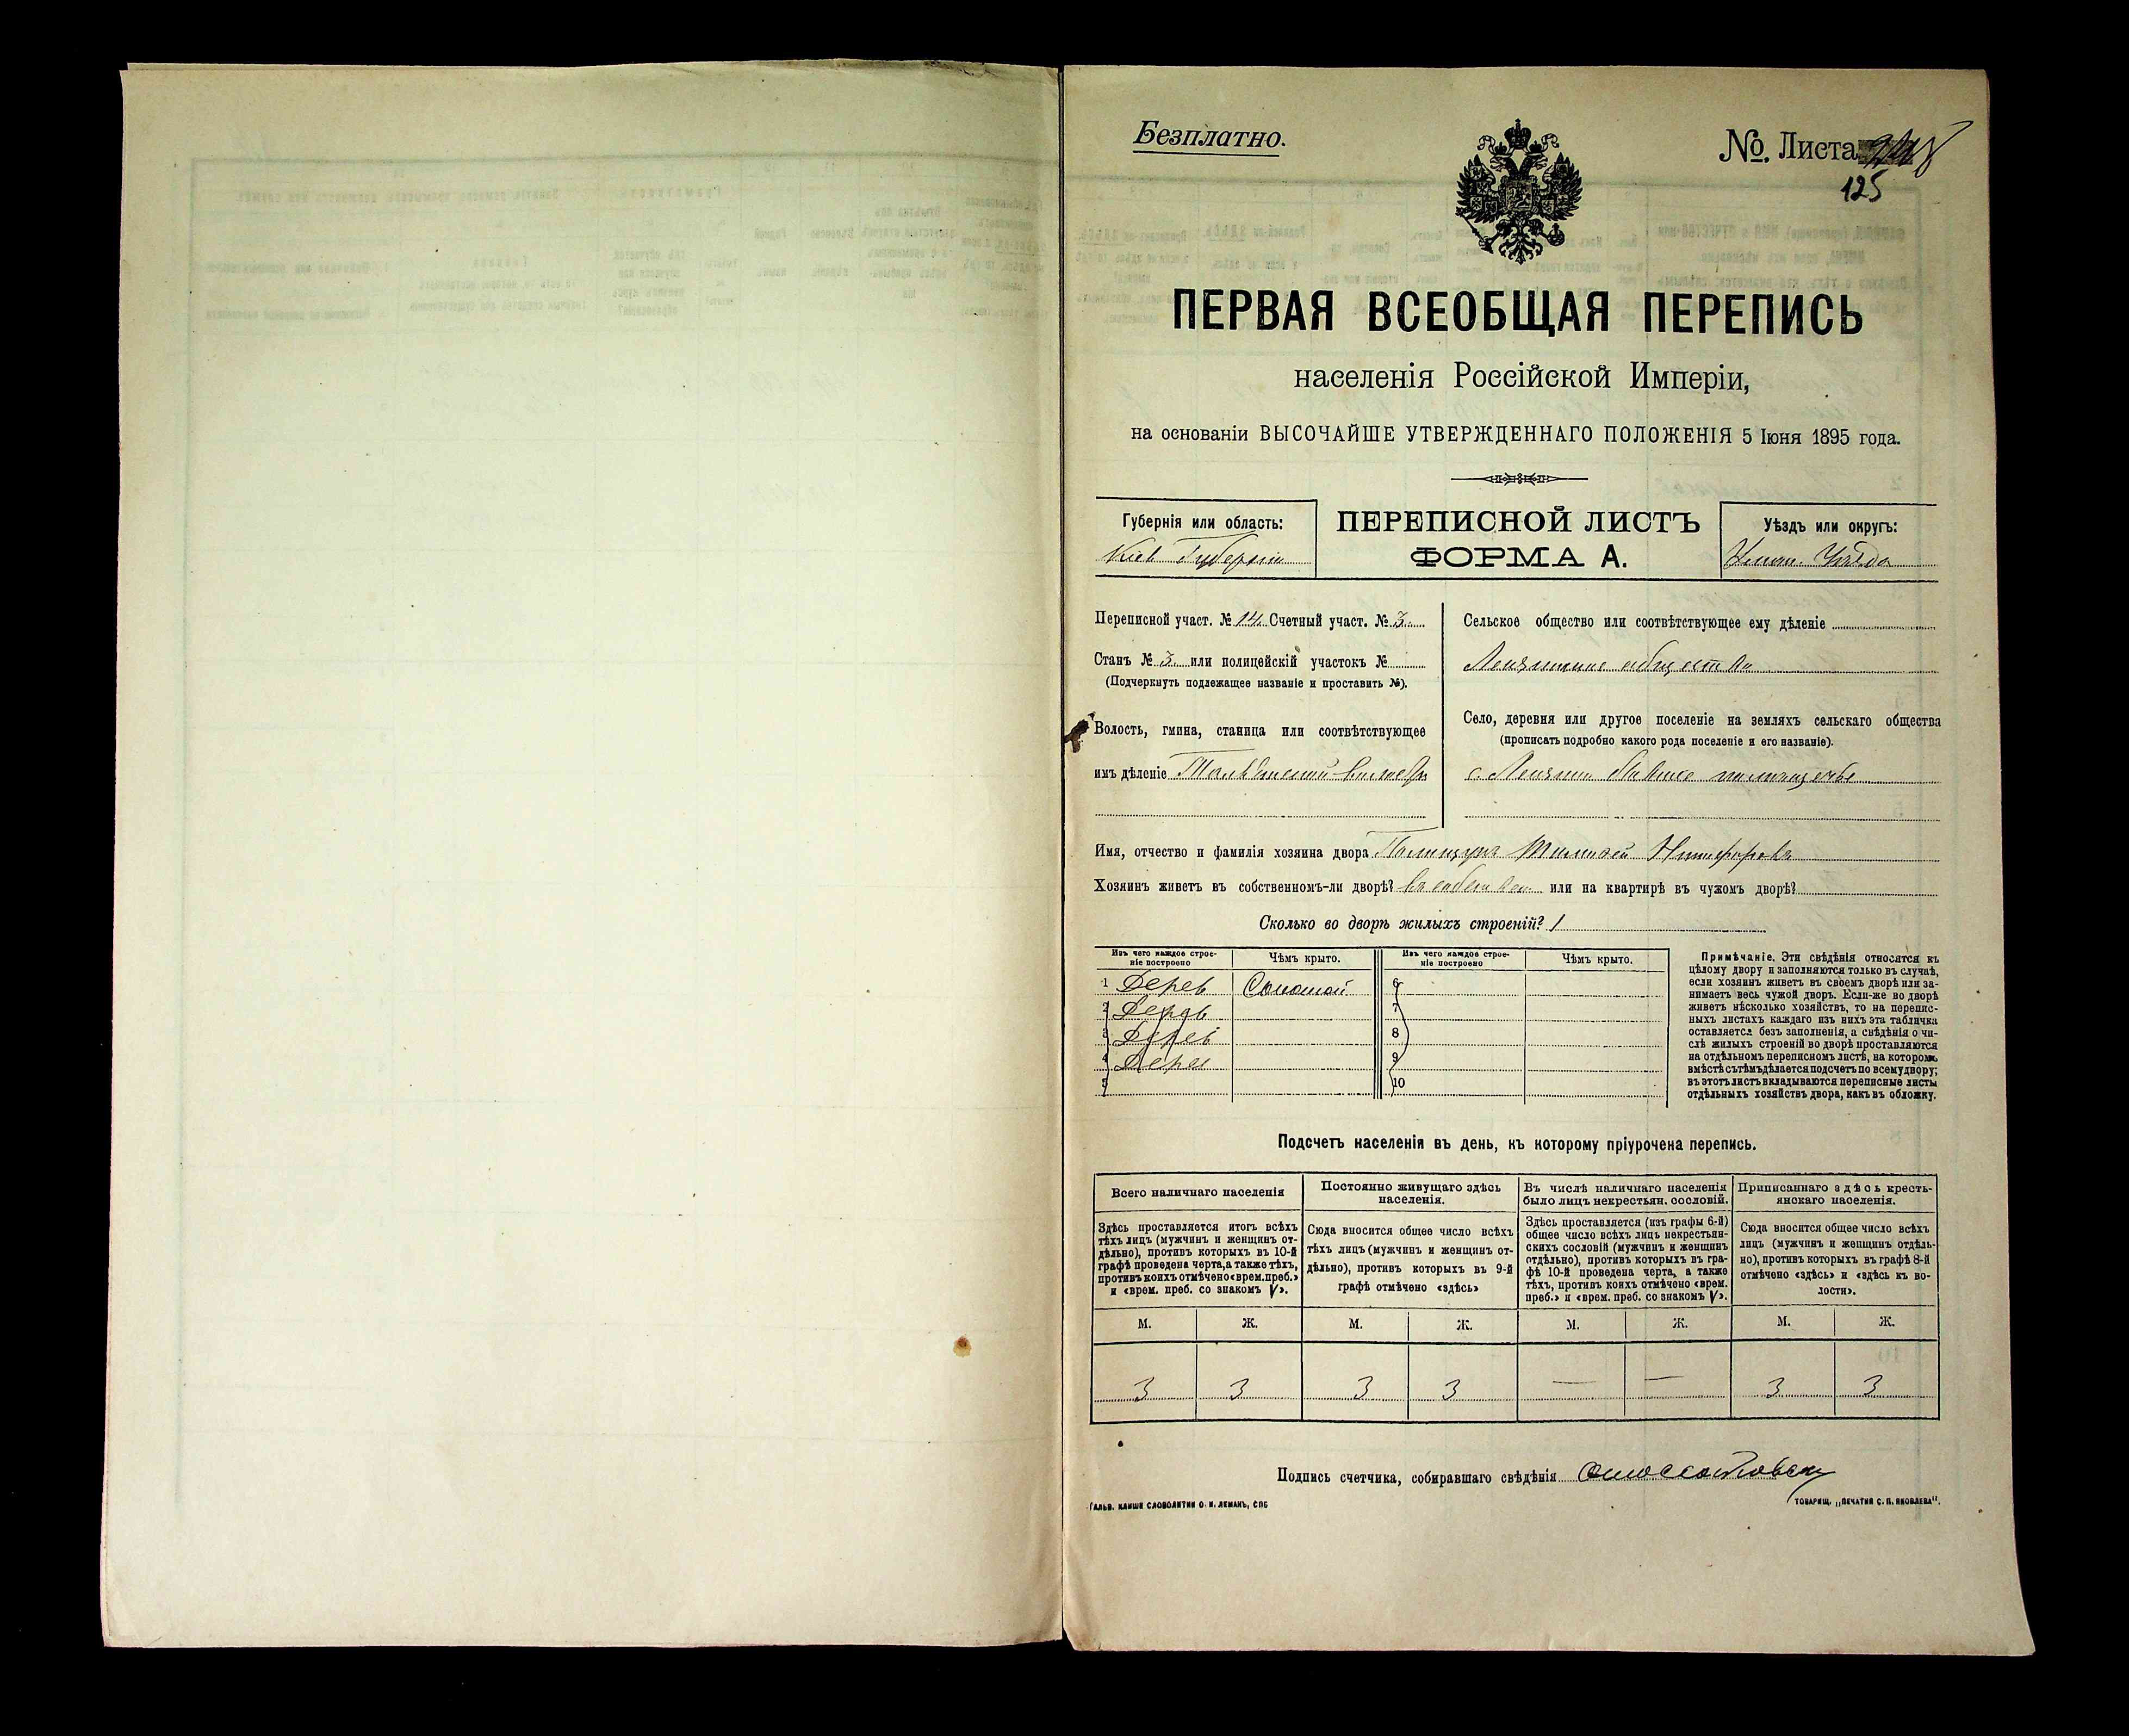 Безплатно.
№. Листа
125
ПЕРВАЯ ВСЕОБЩАЯ ПЕРЕПИСЬ
населенія Россійской Имперіи,
на основаніи ВЫСОЧАЙШЕ УТВЕРЖДЕННАГО ПОЛОЖЕНІЯ 5 Іюня 1895 года.
Губернія или область:
Кіев Губерніи
ПЕРЕПИСНОЙ ЛИСТЪ
ФОРМА А.
Уѣздъ или округъ:
Уман. Уѣзда
Переписной участ. № 14 Счетный участ. № 3
Станъ № 3 или полицейскій участокъ №
(Подчеркнуть подлежащее названіе и проставить №).
Волость, гмина, станица или соотвѣтствующее
имъ дѣленіе
Сельское общество или соотвѣтствующее ему дѣленіе
общества
Село, деревня или другое поселеніе на земляхъ сельскаго общества
(прописать подробно какого рода поселеніе и его названіе).
с.
Имя, отчество и фамилія хозяина двора
Хозяинъ живетъ въ собственномъ-ли дворѣ? или на квартирѣ въ чужомъ дворѣ?
Сколько во дворѣ жилыхъ строеній? 1
Изъ чего каждое строе-
ніе построено
Чѣмъ крыто.
Изъ чего каждое строе-
ніе построено
Чѣмъ крыто.
1 Дерев Соломой 6
2 Дерев 7
3 Дерев 8
4 Дерев 9
5 10
Примѣчаніе. Эти свѣдѣнія относятся къ
цѣлому двору и заполняются только въ случаѣ,
если хозяинъ живетъ въ своемъ дворѣ или за-
нимаетъ весь чужой дворъ. Если-же во дворѣ
живетъ нѣсколько хозяйствъ, то на перепис-
ныхъ листахъ каждаго изъ нихъ эта табличка
оставляется безъ заполненія, а свѣдѣнія о чи-
слѣ жилыхъ строеній во дворѣ проставляются
на отдѣльномъ переписномъ листѣ, на которомъ
вмѣстѣ съ тѣмъ дѣлается подсчетъ по всему двору;
въ этотъ листъ вкладываются переписные листы
отдѣльныхъ хозяйствъ двора, какъ въ обложку.
Подсчетъ населенія въ день, къ которому пріурочена перепись.
Всего наличнаго населенія
Здѣсь проставляется итогъ всѣхъ
тѣхъ лицъ (мужчинъ и женщинъ от-
дѣльно), противъ которыхъ въ 10-й
графѣ проведена черта, а также тѣхъ,
противъ коихъ отмѣчено «врем. преб.»
и «врем. преб. со знакомъ V».
Постоянно живущаго здѣсь
населенія.
Сюда вносится общее число всѣхъ
тѣхъ лицъ (мужчинъ и женщинъ от-
дѣльно), противъ которыхъ въ 9-й
графѣ отмѣчено «здѣсь»
Въ числѣ наличнаго населенія
было лицъ некрестьян. сословій.
Здѣсь проставляется (изъ графы 6-й)
общее число всѣхъ лицъ некрестьян-
скихъ сословій (мужчинъ и женщинъ
отдѣльно), противъ которыхъ въ гра-
фѣ 10-й проведена черта, а также
тѣхъ, противъ коихъ отмѣчено «врем.
преб.» и «врем. преб. со знакомъ V».
Приписаннаго здѣсь кресть-
янскаго населенія.
Сюда вносится общее число всѣхъ
лицъ (мужчинъ и женщинъ отдѣль-
но), противъ которыхъ въ графѣ 8-й
отмѣчено «здѣсь» и «здѣсь къ во-
лости».
М. Ж. М. Ж. М. Ж. М. Ж.
3 3 3 3 — — 3 3
Подпись счетчика, собиравшаго свѣдѣнія
ГАЛЬВ. КЛИШЕ СЛОВОЛИТНИ О. И. ЛЕМАНЪ, СПБ
ТОВАРИЩ. „ПЕЧАТНЯ С. П. ЯКОВЛЕВА“.